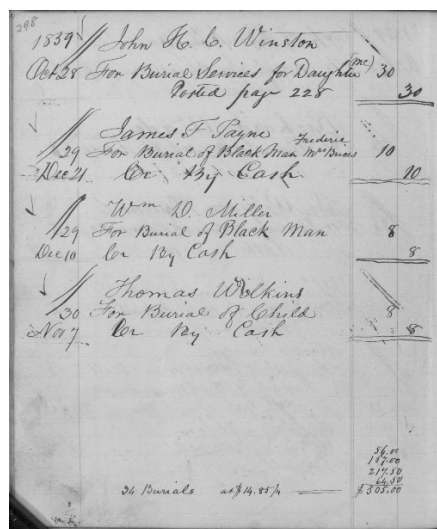 298
1859 John H. C. Winston
Oct 28 For Burial Services for Daughter (mc) 30
Posted page 228 30
James F Payne
Frederic
29 For Burial of Black Man Mr Buces 10
Dec 21 Cr By Cash 10
Wm D. Miller
29 For Burial of Black Man 8
Dec 10 Cr By Cash 8
Thomas Wilkins
30 For Burial of Child 8
Nov 7 Cr By Cash 8
56.00
167.00
217.50
64.50
34 Burials at $14.85/4 $505.00